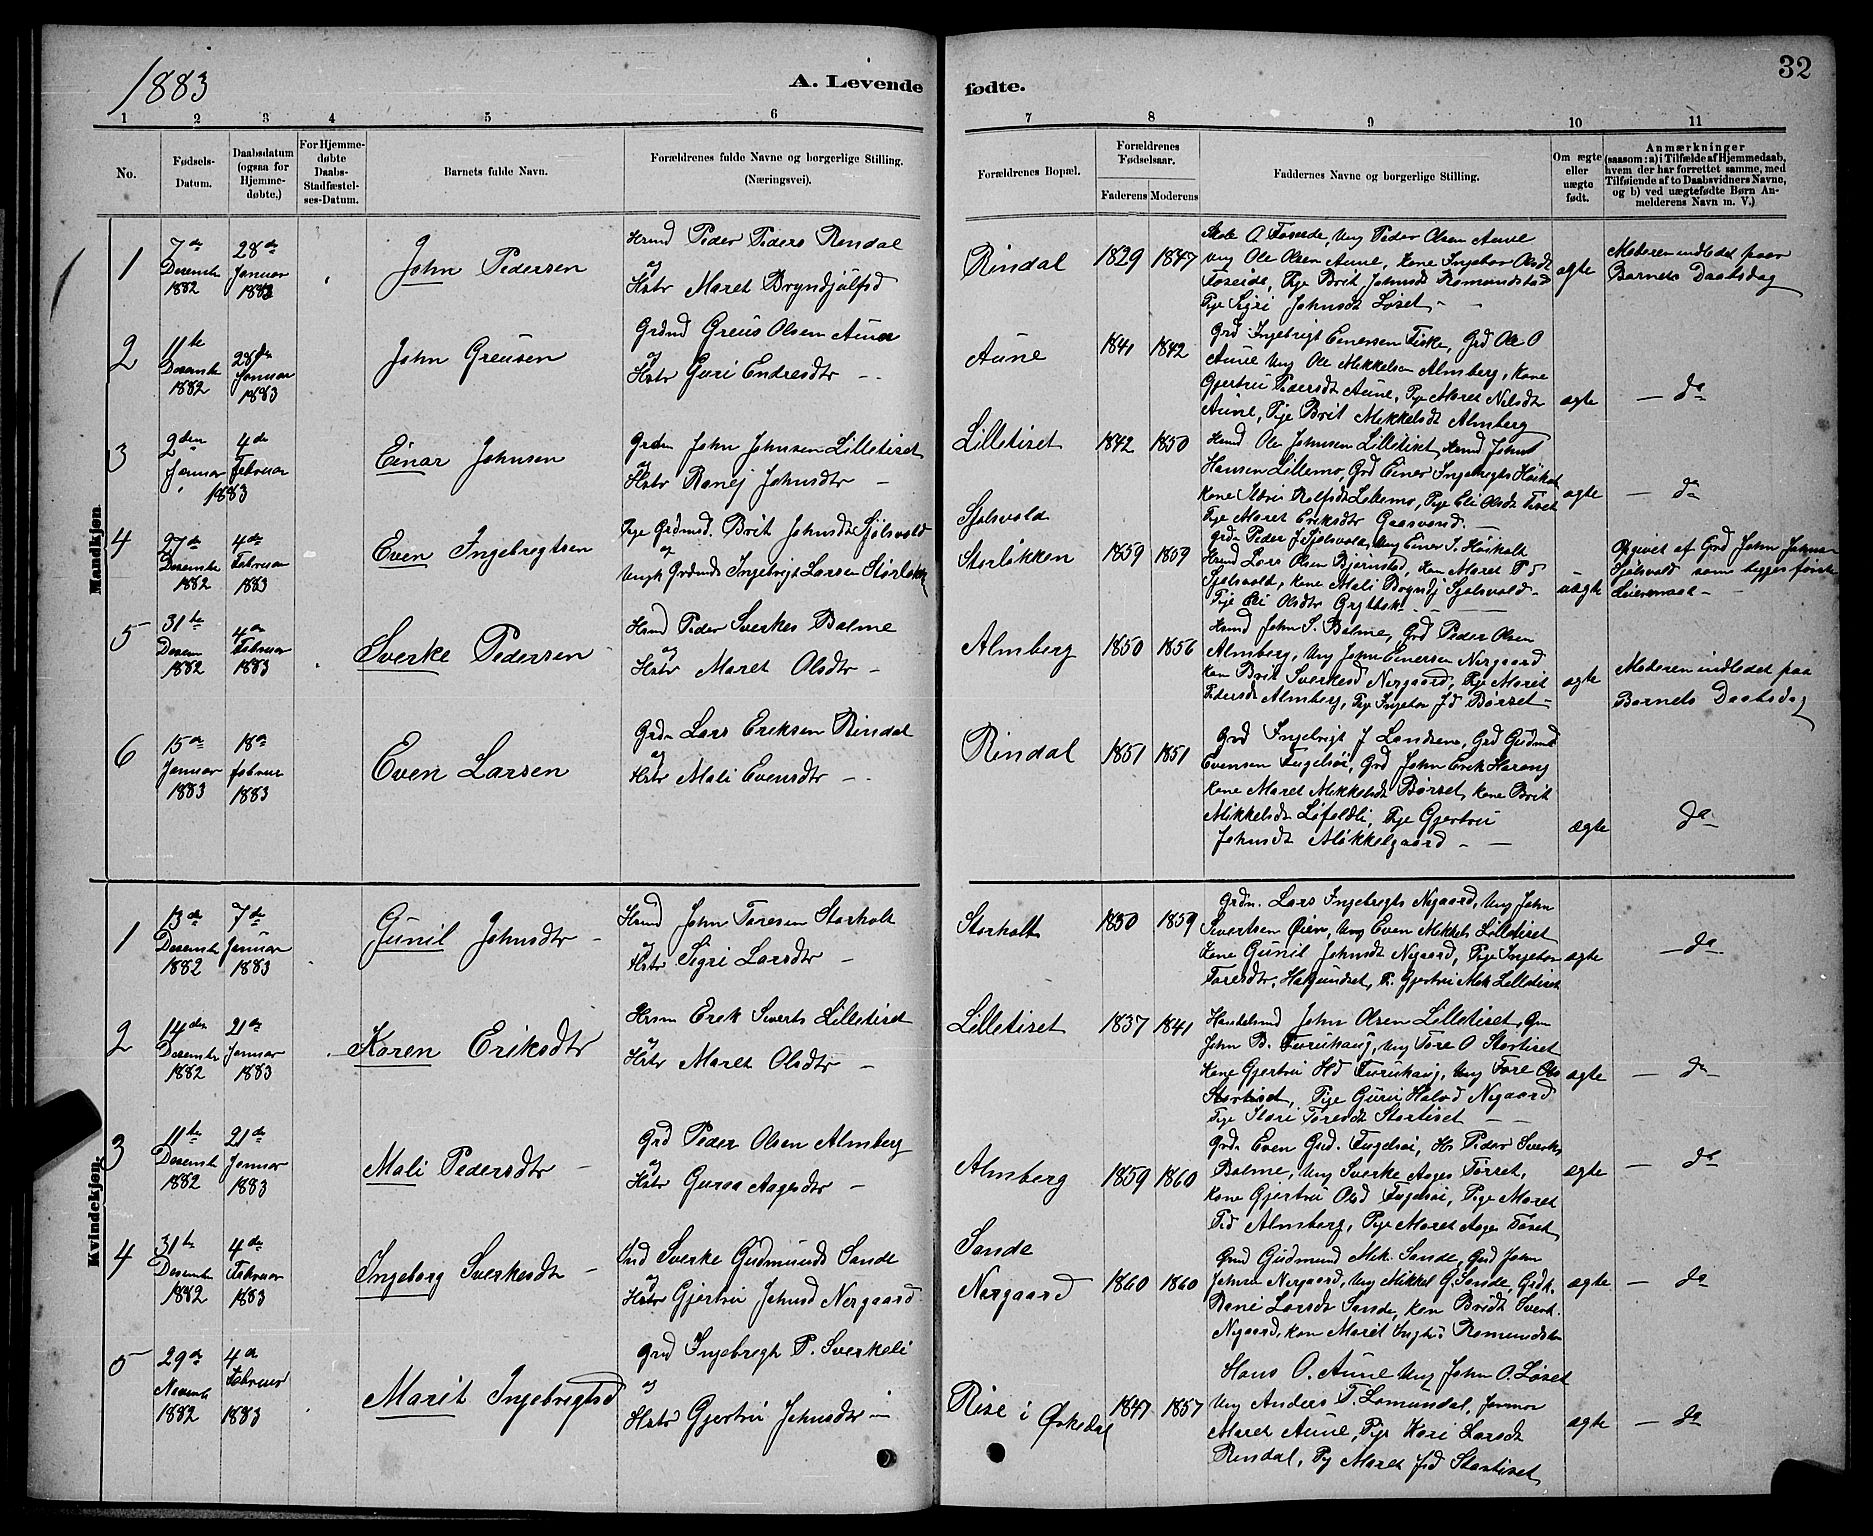 1883
A. Levende fødte.
32
1 2 3 4 5 6 7 8 9 10 11
No.
Fødsels-
Datum.
Daabsdatum
(ogsaa for
Hjemme-
døbte.)
For Hjemme-
døbte
Daabs-
Stadfæstel-
ses-Datum.
Barnets fulde Navn.
Forældrenes fulde Navne og borgerlige Stilling.
(Næringsvei).
Forældrenes Bopæl.
Forældrenes
Fødselsaar.
Faderens
Moderens
Faddernes Navne og borgerlige Stilling.
Om ægte
eller
uægte
født.
Anmærkninger
(saasom: a) i Tilfælde af Hjemmedaab,
hvem der har forrettet samme, med
Tilføiende af to Daabsvidners Navne,
og b) ved uægtefødte Børn An-
melderens Navn m. V.)
Mandkjøn.
1
7de
Desemb
1882
28de
Januar
1883
John Pedersen
Hsmd Peder Peders Rindal
og
Hstr Maret Bryndjulfsd
Rindal
1829
1847
Ung Peder Olsen Aune
Ung Ole Olsen Aune, Kone Ingebor Olsdt
Foseide, Pige Brit Johnsdt Romundstad
Pige Sigri Johnsdt Løset
ægte
Moderen indledet paa
Barnets Daabsdag
2
11te
Desemb
1882
28de
Januar
1883
John Greusen
Grdmd Greus Olsen Aune
og
Hstr Guri Endresdtr
Aune
1841
1842
Grd Ingebrigt Einersen Fiske, Grd Ole O
Aune Ung Ole Mikkelsen Almberg, Kone
Gjertru Pedersdt Aune, Pige Maret Nilsdtr
Aune, Pige Brit Mikkelsdt Almberg
ægte
da
3
2den
Januar
4de
Februar
1883
Einar Johnsen
Grdm John Johnsen Lilletiset
og
Hstr Ranej Johnsdtr
Lilletiset
1842
1850
Hsmd Ole Johnsen Lilletiset, Hsmd John
Hansen Lillemo, Grd Einer Ingebrigts Høiholt
Pige Maret Eriksdtr Gaasvand
ægte
da
4
27de
Desemb
1882
4de
Februar
1883
Even Ingebregtsen
Pige Grdmd. Brit Johnsdt Sjølsvold
og
Ungk Grdmds Ingebrigt Larsen Størløkk
Sjølsvold
Storløkken
1859
1859
Grdm Peder J Sjølsvold, Ung Einer I. Høiholt
Hsmd Lars Olsen Bjørnstad, Kone Maret P d
Sjølsvold, Kone Mali Bryndj Sjølsvold
Pige Eli Olsdtr Grytbak
uægte
Opgivet af Grd John Johnsen
Sjølsvold som begges første
Leiermaal
5
31te
Desem
1882
4de
Februar
1883
Sverke Pedersen
Hsmd Peder Sverkes Bolme
og
Hstr Maret Olsdtr
Almberg
1850
1856
Hsmd John S. Bolme, Grd Peder Olsen
Almberg, Ung John Einersen Nergaard
Kone Brit Sverkesd Nergaard, Pige Marit
Pedersdt Almberg, Pige Ingebor J d Børset
ægte
Moderen indledet paa
Barnets Daabsdag
6
15de
Januar
1883
18de
Februar
1883
Even Larsen
Grdm Lars Eriksen Rindal
og
Hstr Mali Evensdtr
Rindal
1851
1851
Grd Ingebrigt J Landsem, Grd Gudmd
Evensen Fugelsøi, Grd John Erik Harang
Kone Maret Mikkelsdt Børset, Kone Brit
Mikkelsdt Løfaldli, Pige Gjertru
Johnsdt Mikkelgaard
ægte
da
Kvindekjøn.
1
13de
Desemb
1882
7de
Januar
1883
Gunil Johnsdtr
Hsmd John Toresen Storholt
og
Hstr Sigri Larsdtr
Storholt
1850
1859
Grdm. Lars Ingebrigts Nygaard, Ung John
Sivertsen Øien, Ung Even Mikkels Lilletiset
Kone Gunil Johnsdt Nygaard, Pige Ingebor
Toresdtr, P. Gjertru Mik Lilletiset
ægte
da
2
14de
Desemb
1882
21de
Januar
1883
Karen Eriksdtr
Hsm Erik Siverts Lilletiset
og
Hstr Maret Olsdtr
Lilletiset
1837
1841
Handelsmd John Olsen Lilletiset, Grm
John B. Furuhaug, Ung Tore O Stortiset
Kone Gjertru Hd Furuhaug, Ung Tore Ols
Stortiset, Pige Guru Halvd Nygaard
Pige Stori Toresdt Stortiset
ægte
da
3
11te
Desemb
1882
21de
Januar
1883
Mali Pedersdtr
Grd Peder Olsen Almberg
og
Hstr Guraa Aagesdtr
Almberg
1859
1860
Grd. Even Grd. Fugelsøi, Hs Peder Sverk
Bolme, Ung Sverke Aages Torset,
Kone Gjertru Olsd Fugelsøi, Pige Maret
P d Almberg, Pige Maret Aages Torset
ægte
da
4
31te
Desemb
1882
4de
Februar
1883
Ingeborg Sverkesdtr
Ind Sverke Gudmunds Sande
og
Hstr Gjertru Johnsd Nergaard
Sande
Nergaard
1860
1860
Grmd Gudmund Mik. Sande, Grd John
Johnsn Nergaard, Ung Mikkel G. Sande, Grdk.
Rani Larsdt Sande, Kone Bridt Sverk.
Nygaard, Kone Marit Ingbr. Romundsta
ægte
da
5
29de
Novemb
1882
4de
Februar
1883
Marit Ingebrigtsd
Grd Ingebrigt P. Sverkeli
og
Hstr Gjertru Johnsdtr
Rise i Orkedal
1847
1857
Hans O. Aune Ung John O. Løset
Ung Anders T. Lomundal, Jonmor
Maret Aune, Pige Kari Larsdt
Rindal, Pg Maret J d Stortiset
ægte
da